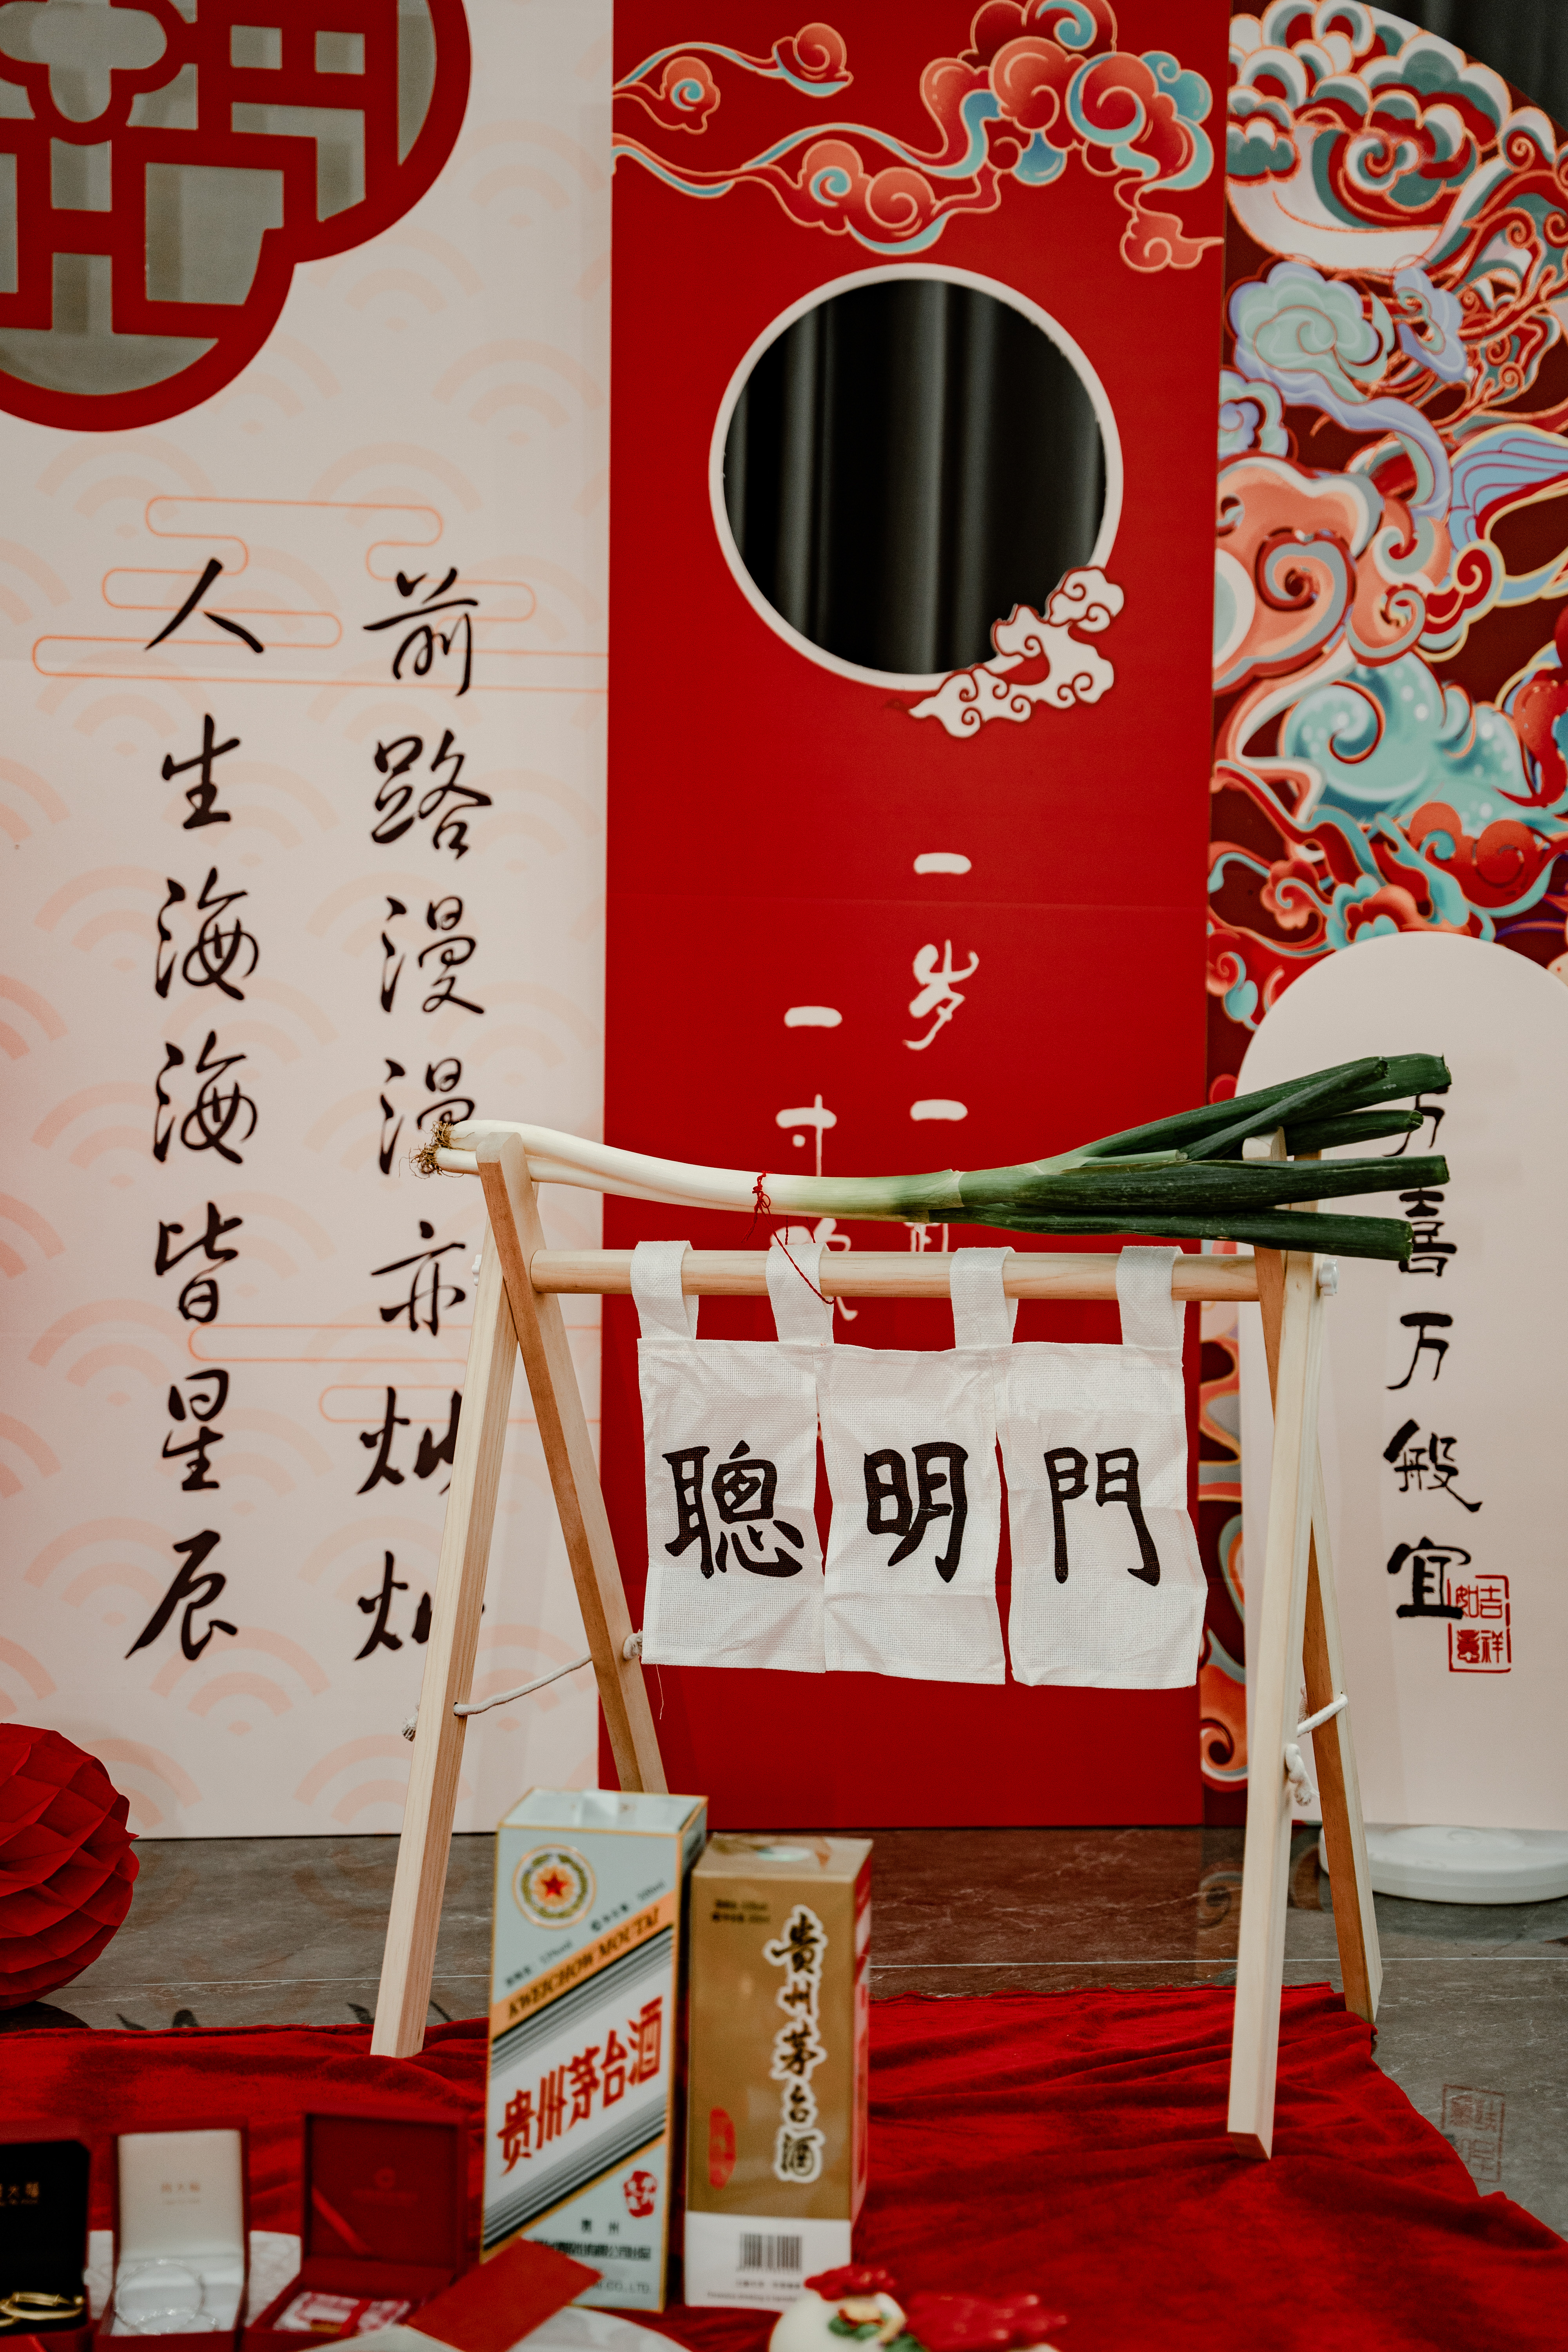 前路漫漫亦灿灿
人生海海皆星辰
一岁一
一寸
万喜万般宜
吉祥
如意
聰明門
KWEICHOW MOUTAI
贵州茅台酒
贵州
貴州茅台酒